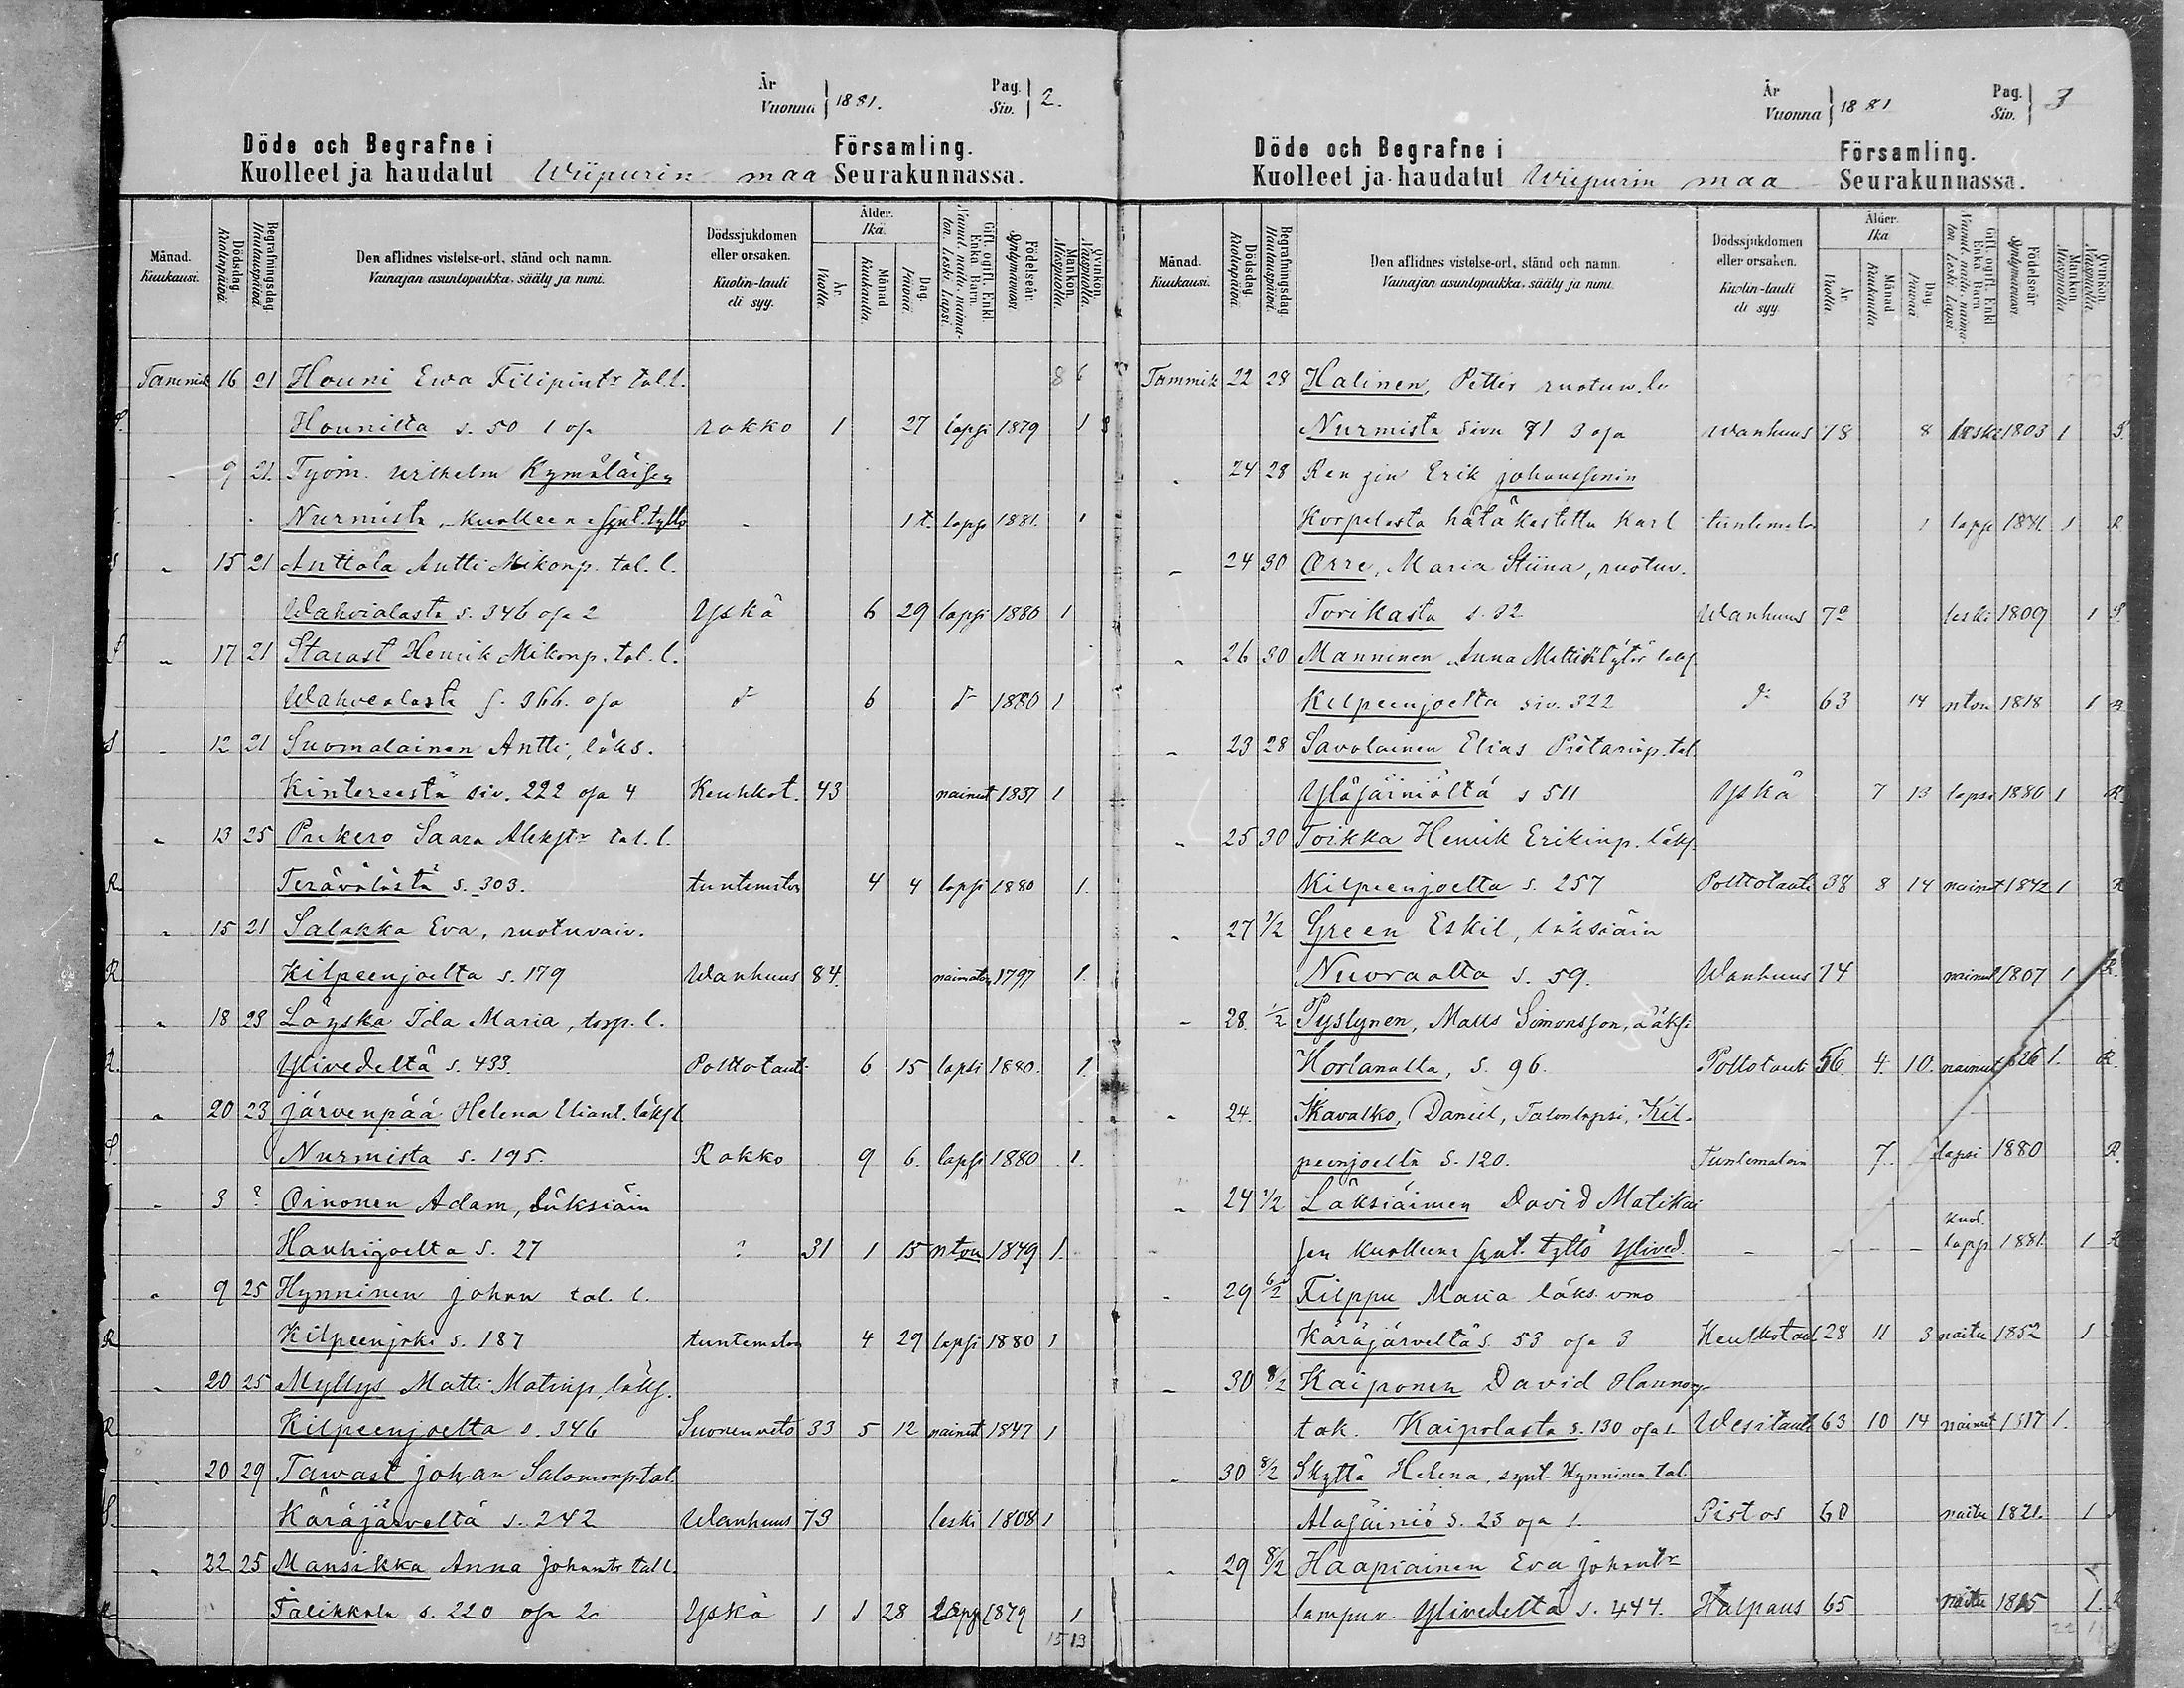 År
Vuonna 1881.
Pag.
Siv. 2.
Döde och Begrafne i Församling.
Kuolleet ja haudatut Wiipurin maa Seurakunnassa.
Månad.
Kuukausi.
Dödsdag
Kuolinpäivä.
Begrafningsdag
Hautauspäivä.
Den aflidnes vistelse-ort, stånd och namn.
Vainajan asuntopaikka, sääty ja nimi.
Dödssjukdomen
eller orsaken.
Kuolin-tauti
eli syy.
Ålder.
Ikä.
År
Vuotta.
Månad
Kuukautta.
Dag.
Päivää
Gift, ogift, Enkl.
Enka Barn.
Nainut, naitu, naima-
ton, Leski, Lapsi.
Födelseår.
Syntymävuosi.
Mankön.
Miespuolia.
Qvinkön.
Naispuolia.
Tammik 16 21 Houni Ewa Filipintr tal.l. 8 6
S. Hounilta s. 50 1 osa rokko 1 27 lapsi 1879 1
" 9 21. Työm. Wilhelm Kymäläisen
Nurmista, kuolleena synt. tyttö - 1 t. lapsi 1881. 1
S " 15 21 Anttola Antti Mikonp. tal. l.
Wahvialasta s. 346 osa 2 Yskä 6 29 lapsi 1880 1
S " 17 21 Starast Henrik Mikonp. tal. l.
Wahvealasta s. 366. osa d:o 6 d:o 1880 1
S " 12 21 Suomalainen Antti, läks.
Kintereestä siv. 222 osa 4 Keuhkot. 43 nainut 1837 1
" 13 25 Pukero Saara Alekstr tal. l.
R Terävälästä s. 303. tuntematon 4 4 lapsi 1880 1.
" 15 21 Salakka Eva, ruotuvaiv.
R Kilpeenjoelta s. 179 Wanhuus 84. naimaton 1797 1.
" 18 23 Löyska Ida Maria, torp. l.
R. Ylivedeltä s. 433. Polttotauti 6 15 lapsi 1880. 1.
" 20 23 Järvenpää Helena Eliant. läks l
S. Nurmista s. 195. Rokko 9 6. lapsi 1880 1.
" 3 ? Oinonen Adam, Läksiäin
Hanhijoelta s. 27 ? 31 1 15 nton 1849 1.
" 9 25 Hynninen Johan tal. l.
R Kilpeenjoki s. 187 tuntematon 4 29 lapsi 1880 1
" 20 25 Myllys Matti Matinp, läks.
R Kilpeenjoelta s. 346 Suonenveto 33 5 12 nainut 1847 1
" 20 29 Tawast Johan Salomonp. tal.
S. Käräjärveltä s. 242 Wanhuus 73 leski 1808 1
" 22 25 Mansikka Anna Johantr tal l.
R Talikkala s. 220 osa 2 Yskä 1 1 28 Laps 1879 1
15 13
År
Vuonna 1881
Pag.
Siv. 3
Döde och Begrafne i Församling.
Kuolleet ja haudatut Wiipurin maa Seurakunnassa.
Månad.
Kuukausi.
Dödsdag
Kuolinpäivä.
Begrafningsdag
Hautauspäivä.
Den aflidnes vistelse-ort, stånd och namn.
Vainajan asuntopaikka, sääty ja nimi.
Dödssjukdomen
eller orsaken.
Kuolin-tauti
eli syy.
Ålder.
Ikä
År
Vuotta.
Månad
Kuukautta.
Dag
Päivää
Gift, ogift, Enkl
Enka Barn.
Nainut, naitu, naima-
ton, Leski, Lapsi
Födelseår
Syntymävuosi
Mankön
Miespuolia
Qvinkön.
Naispuolia.
Tammik 22 28 Halinen, Petter ruotuw.
Nurmista sivu 81 3 osa Wanhuus 78 8 leski 1803 1 S.
" 24 28 Rengin Erik Johanssonin
Korpelasta hätäkastettu Karl tuntematon 1 lapsi 1881. 1 R
" 24 30 Orre, Maria Stiina, ruotuv.
Torikasta s. 32 Wanhuus 72 leski 1809 1 S.
" 26 30 Manninen Anna Matintytär läks
Kilpeenjoelta siv. 322 d:o 63 14 nton 1818 1 R
" 23 28 Savolainen Elias Pietarinp. tal
Yläsäiniöltä s 511 Yskä 7 13 lapsi 1880 1 R
" 25 30 Toikka Henrik Erikinp. läks
Kilpeenjoelta s. 257 Polttotauti 38 8 14 nainut 1842 1 R
" 27 1/2 Green Eskil, läksiäin
Nuoraalta s. 59. Wanhuus 74 nainut 1807 1 R.
" 28. 1/2 Pyslynen, Matts Simonsson, Läksi
Horlanalta, s. 96. Polttotauti 56 4. 10. nainut 1826 1. R.
" 24. Kavalko, Daniel, Talonlapsi, Kil-
peenjoelta s. 120. Tuntematoin 7. lapsi 1880 R.
" 24 1/2 Läksiäimen David Matikai
sen kuolleena synt. tyttö Ylived. - - - - kuol. lapsi 1881. 1 R
" 29 6/2 Filppu Maria läks. vmo
Käräjärveltä s. 53 osa 3 Keuhkotaut 28 11 3 naitu 1852 1
" 30 8/2 Kaiponen David Hannonp
tal. Kaipolasta s. 130 osa 1. Wesitauti 63 10 14 nainut 1817 1.
" 30 8/2 Skyttä Helena, synt. Hynninen tal.
Alasäiniö s. 23 osa 1. Pistos 60 naitu 1821. 1
" 29 8/2 Haapiainen Eva Johantr
lampuv. Ylivedeltä s. 444. Halpaus 65 naitu 1815 1. R
22